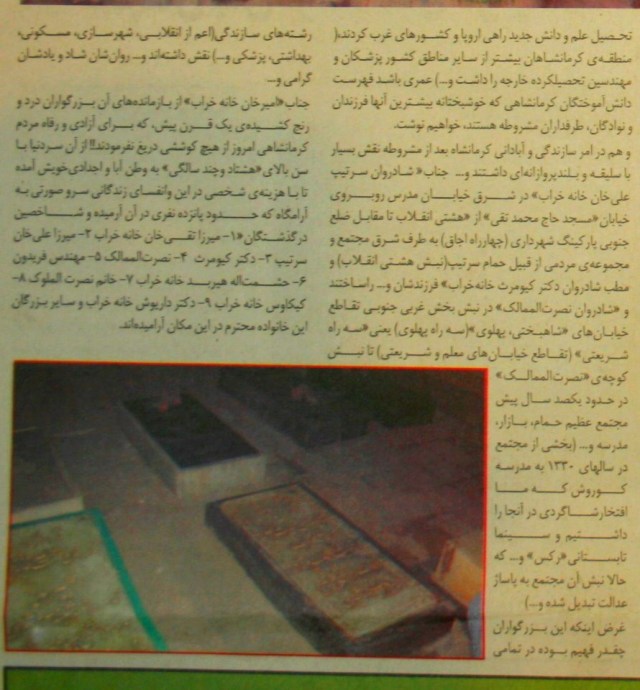 تحصیل علم و دانش جدید راهی اروپا و کشورهای غرب کردند،(
منطقه‌ی کرمانشاهان بیشتر از سایر مناطق کشور پزشکان و
مهندسین تحصیلکرده خارجه را داشت و...) عمری باشد فهرست
دانش‌آموختگان کرمانشاهی که خوشبختانه بیشترین آنها فرزندان
و نوادگان، طرفداران مشروطه هستند، خواهیم نوشت.
و هم در امر سازندگی و آبادانی کرمانشاه بعد از مشروطه نقش بسیار
با سلیقه و بلندپروازانه‌ای داشتند و... جناب« شادروان سرتیپ
علی‌خان خانه خراب» در شرق خیابان مدرس روبروی
خیابان «مسجد حاج محمد تقی» از «هشتی انقلاب تا مقابل ضلع
جنوبی پارکینگ شهرداری (چهارراه اجاق) به طرف شرق مجتمع و
مجموعه‌ی مردمی از قبیل حمام سرتیپ(نبش هشتی انقلاب) و
مطب شادروان دکتر کیومرث خانه‌خراب» فرزندشان و... راساختند
و «شادروان نصرت‌الممالک» در نبش بخش غربی جنوبی تقاطع
خیابان‌های «شاهبختی، پهلوی»(سه راه پهلوی) یعنی«سه راه
شریعتی» (تقاطع خیابان‌های معلم و شریعتی) تا نبش
کوچه‌ی «نصرت‌الممالک»
در حدود یکصد سال پیش
مجتمع عظیم حمام، بازار،
مدرسه و... (بخشی از مجتمع
در سالهای ۱۳۳۰ به مدرسه
کوروش که ما
افتخارشاگردی در آنجا را
داشتیم و سینما
تابستانی «رکس» و... که
حالا نبش آن مجتمع به پاساژ
عدالت تبدیل شده و...)
غرض اینکه این بزرگواران
چقدر فهیم بوده در تمامی
رشته‌های سازندگی(اعم از انقلابی، شهرسازی، مسکونی،
بهداشتی، پزشکی و...) نقش داشته‌اند و... روان‌شان شاد و یادشان
گرامی و...
جناب«امیرخان خانه خراب» از بازمانده‌های آن بزرگواران درد و
رنج کشیده‌ی یک قرن پیش، که برای آزادی و رفاه مردم
کرمانشاهی امروز از هیچ کوششی دریغ نفرمودند!! از آن سردنیا با
سن بالای «هشتاد وچند سالگی» به وطن آبا و اجدادی‌خویش آمده
تا با هزینه‌ی شخصی در این وانفسای زندگانی سرو صورتی به
آرامگاه که حدود پانزده نفری در آن آرمیده و شاخصین
درگذشتگان «۱- میرزا تقی‌خان خانه خراب ۲- میرزا علی‌خان
سرتیپ ۳- دکتر کیومرث ۴- نصرت‌الممالک ۵- مهندس فریدون
۶- حشمت‌اله هیربد خانه خراب ۷- خانم نصرت الملوک ۸-
کیکاوس خانه خراب ۹- دکتر داریوش خانه خراب و سایر بزرگان
این خانواده محترم در این مکان آرامیده‌اند.